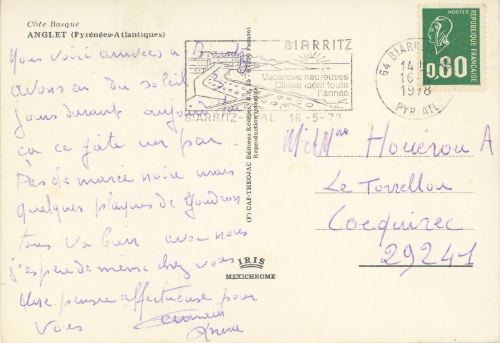 Côte Basque
ANGLET (Pyrénées-Atlantiques)
Nous voici arrivées a
avons eu du soleil
jours durant aujourd'hui
ça ce gâte un peu.
Pas de marée noire mais
quelques plaques de goudron
tous va bien avec nous
j'espère de même chez vous
Une pensée affectueuse pour
Vous
BIARRITZ
Vacances heureuses
Climat idéal toute
l'année
BIARRITZ-PAL 16-5-78
64 BIARRITZ
14
16-5
1978
PYR ATL
POSTES
RÉPUBLIQUE FRANÇAISE
0,80
(F) CAP-THEOJAC Editions
Reproduction interdite
IRIS
MEXICHROME
M et Mme Houérou A
Le Torrellou
Locquirec
29241